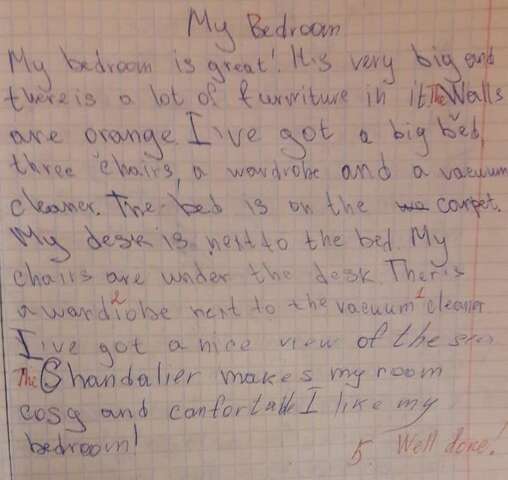 My Bedroom
My bedroom is great! It's very big and
there is a lot of furniture in it. The Walls
are orange. I've got a big bed,
three chairs, a wardrobe and a vacuum
cleaner. The bed is on the carpet.
My desk is next to the bed. My
chairs are under the desk. Ther is
a wardrobe next to the vacuum cleaner
I've got a nice view of the
The Chandalier makes my room
cosy and confortable I like my
bedroom!
5. Well done!